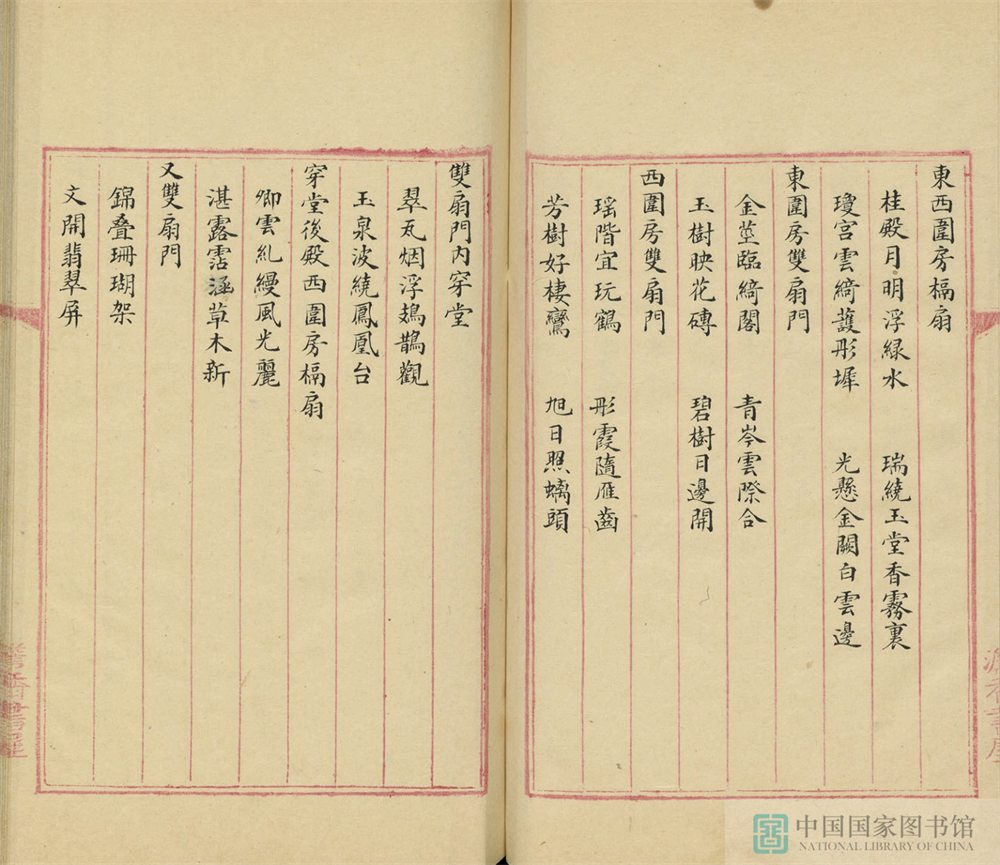 東西圍房槅扇
桂殿月明浮緑水　瑞繞玉堂香霧裏
瓊宫雲綺護彤墀　光懸金闕白雲邊
東圍房雙扇門
金莖臨綺閣　青岑雲際合
玉樹映花磚　碧樹日邊開
西圍房雙扇門
瑶階宜玩鶴　彤霞隨雁齒
芳樹好棲鸞　旭日照螭頭
雙扇門内穿堂
翠瓦烟浮鳷鵲觀
玉泉波繞鳳凰台
穿堂後殿西圍房槅扇
卿雲糺縵風光麗
湛露霑涵草木新
又雙扇門
錦叠珊瑚架
文開翡翠屏
书屋
中国国家图书馆
NATIONAL LIBRARY OF CHINA